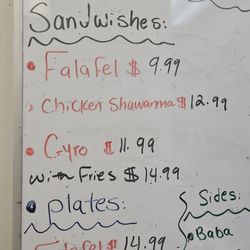 Sandwishes:
• Falafel $ 9.99
• Chicken Shawarma $ 12.99
• Gyro $ 11.99
with Fries $ 14.99
• Plates:
Sides:
• Baba
Falafel $ 14.99